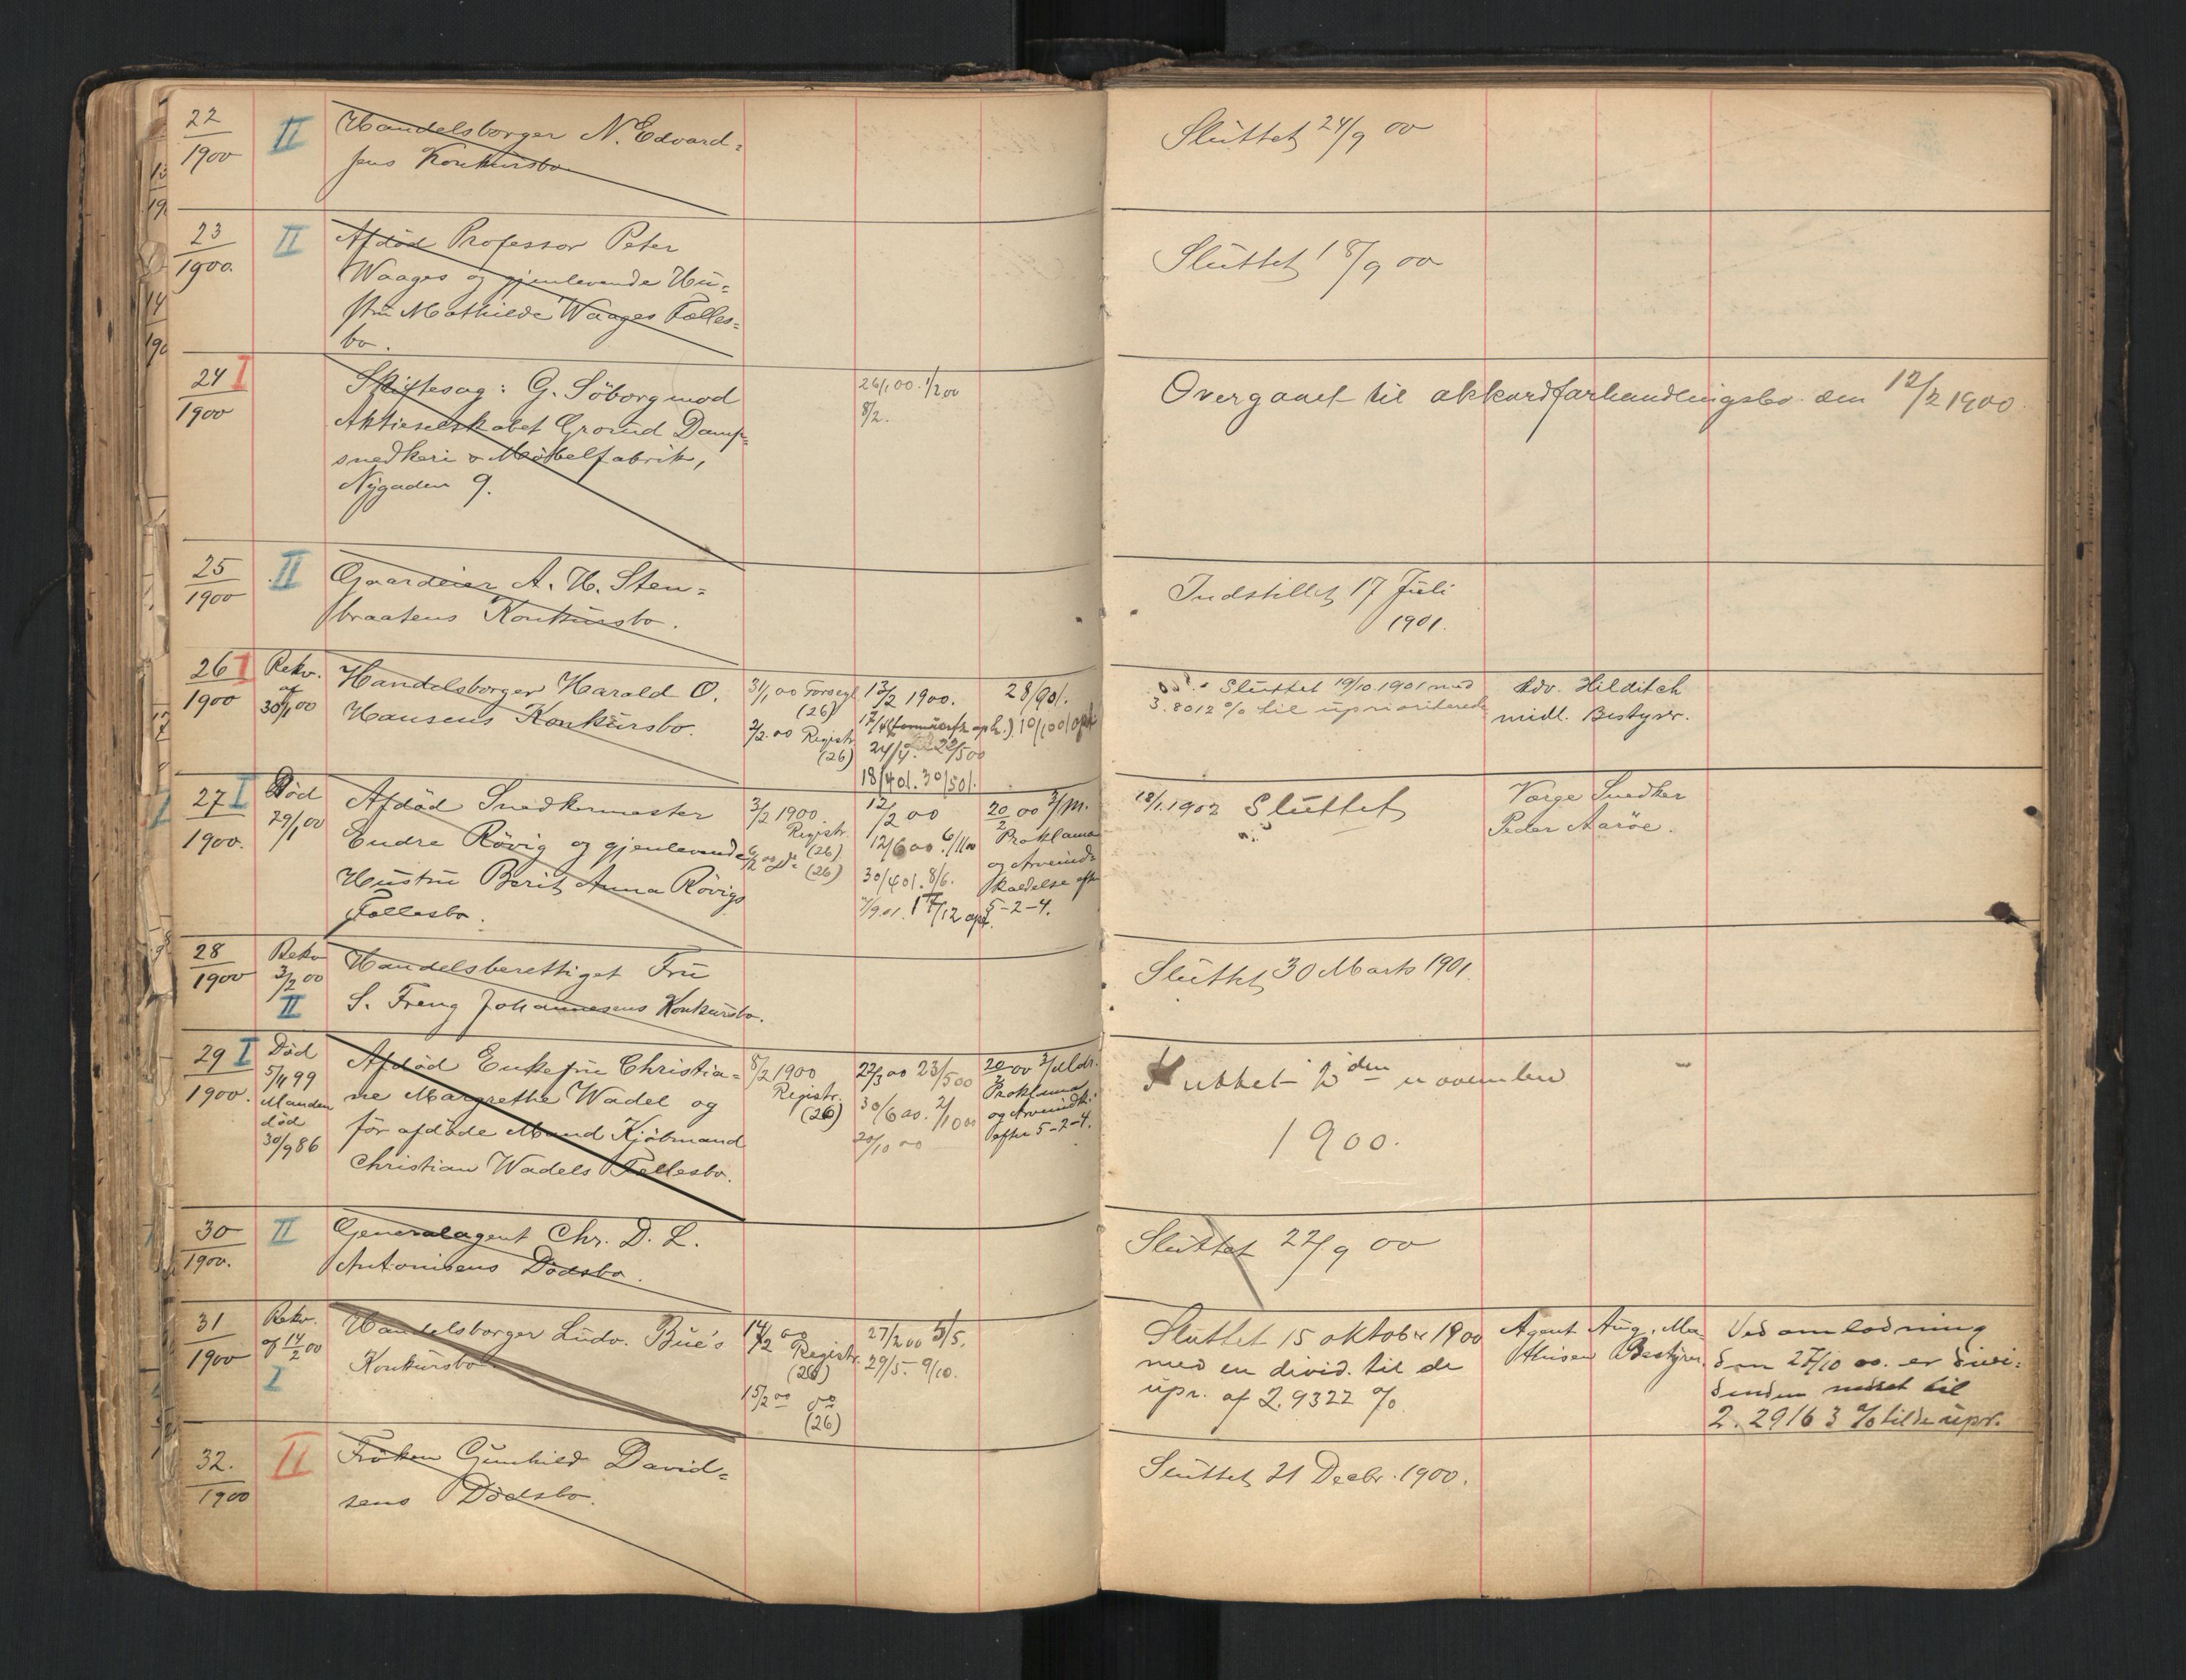 22
1900
II
Handelsborger N. Edvard=
sens Konkursbo
Sluttet 24/9 00
23
1900.
II
Afdöd Professor Peter
Waages og gjenlevende Hu=
stru Mathilde Waages Fælles=
bo.
Sluttet 18/9 00
24 I
1900
Skiftesag: G. Söborg mod
Aktieselskabet Grorud Damp=
snedkeri & Möbelfabrik,
Nygaden 9.
26/1 00. 1/2 00
8/2.
Overgaaet til akkordforhandlingsbo den 12/2 1900.
25
1900
II
Gaardeier A. H. Sten=
braatens Konkursbo.
Indstillet 17 Juli
1901.
26 I
1900
Rekv.
af
30/1 00
Handelsborger Harald O.
Hansens Konkursbo.
31/1 00 Forsegl.
(26)
2/2 00 Registr.
(26)
13/2 1900.
24/4. 22/5 00
18/4 01. 30/5 01.
28/9 01.
Sluttet 19/10 1901 med
3.8012 % til uprioriterede
Adv. Hilditch
midl. Bestyrer.
27 I
1900.
Död
29/1 00
Afdöd Snedkermester
Endre Rövig og gjenlevende
Hustru Berit Anna Rövigs
Fællesbo.
3/2 1900.
Registr.
(26)
6/2 00 do (26)
12/2 00
12/6 00 6/11 00
30/4 01. 8/6.
7/9 01. 17/12 opt.
20/2 00 3/m.
Proklama
og Arveindk
kaldelse efter
5-2-4.
18/1 1902 Sluttet
Værge Snedker
Peder Aarøe.
28
1900
Rekv
3/2 00
II
Handelsberettiget Fru
S. Freng Johannesens Konkursbo.
Sluttet 30 Marts 1901.
29 I
1900.
Död
5/11 99
Manden
död
30/9 86
Afdöd Enkefru Christia=
ne Margrethe Wadel og
för afdöde Mand Kjöbmand
Christian Wadels Fællesbo.
8/2 1900
Registr.
(26)
22/3 00 23/5 00
30/6 00. 2/10 00
20/10 00
20/2 00 3/Mdr.
Proklama
og Arveindk.
efter 5-2-4.
Sluttet 2den november
1900.
30
1900.
II
Generalagent Chr. D. L.
Antonisens Dödsbo.
Sluttet 22/9 00
31
1900
Rekv.
af 14/2 00
I
Handelsborger Ludv. Bue's
Konkursbo
14/2 00
Registr.
(26)
15/2 00 do
(26)
27/2 00 5/5.
29/5. 9/10.
Sluttet 15 oktober 1900
med en divid. til de
upr. af 2.9322 %.
Agent Aug. Ma
thisen Bestyrer.
Ved omlodning
den 27/10 00. er divi=
denden nedsat til
2.29163 % til de upr.
32.
1900
II
Fröken Gunhild David=
sens Dödsbo.
Sluttet 21 Decbr. 1900.